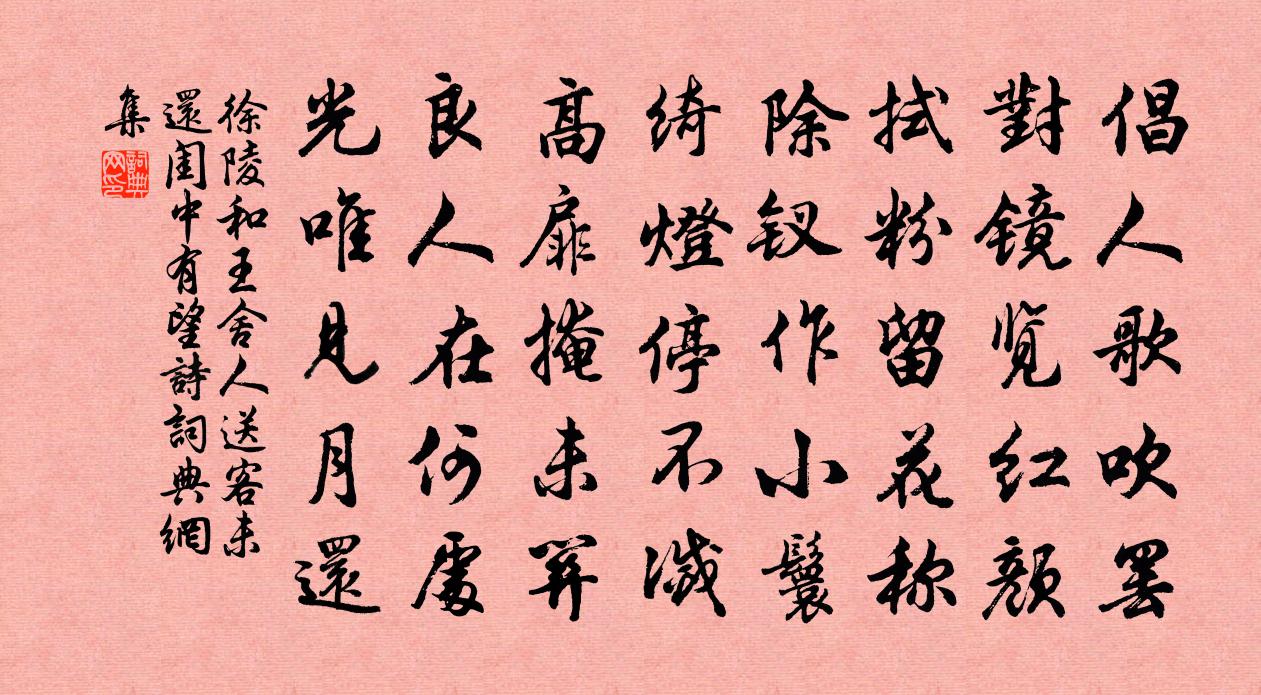 倡人歌吹罢
對镜览红颜
拭粉留花称
除钗作小鬟
绮燈停不滅
高扉掩未關
良人在何處
光唯見月還
徐陵和王舍人送客未
還閨中有望詩詞典網
集
詞典
网印